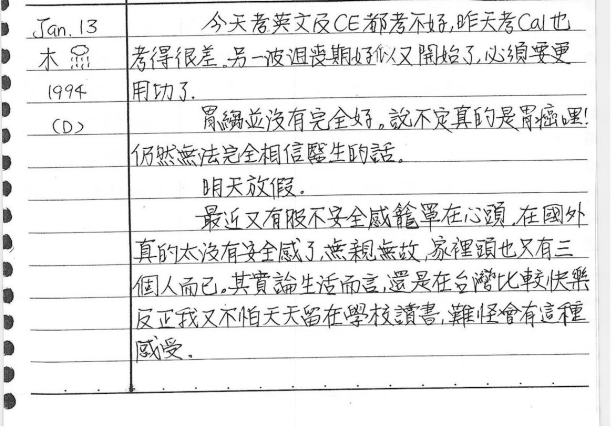 Jan. 13
木
1994
(D)
今天考英文及CE都考不好,昨天考Cal也
考得很差。另一波沮喪期好似又開始了,必須要更
用功了.
胃痛並沒有完全好。說不定真的是胃癌哩!
仍然無法完全相信醫生的話。
明天放假.
最近又有股不安全感籠罩在心頭,在國外
真的太沒有安全感了,無親無故,家裡頭也只有三
個人而已。其實論生活而言,還是在台灣比較快樂
反正我又不怕天天留在學校讀書,難怪會有這種
感受.